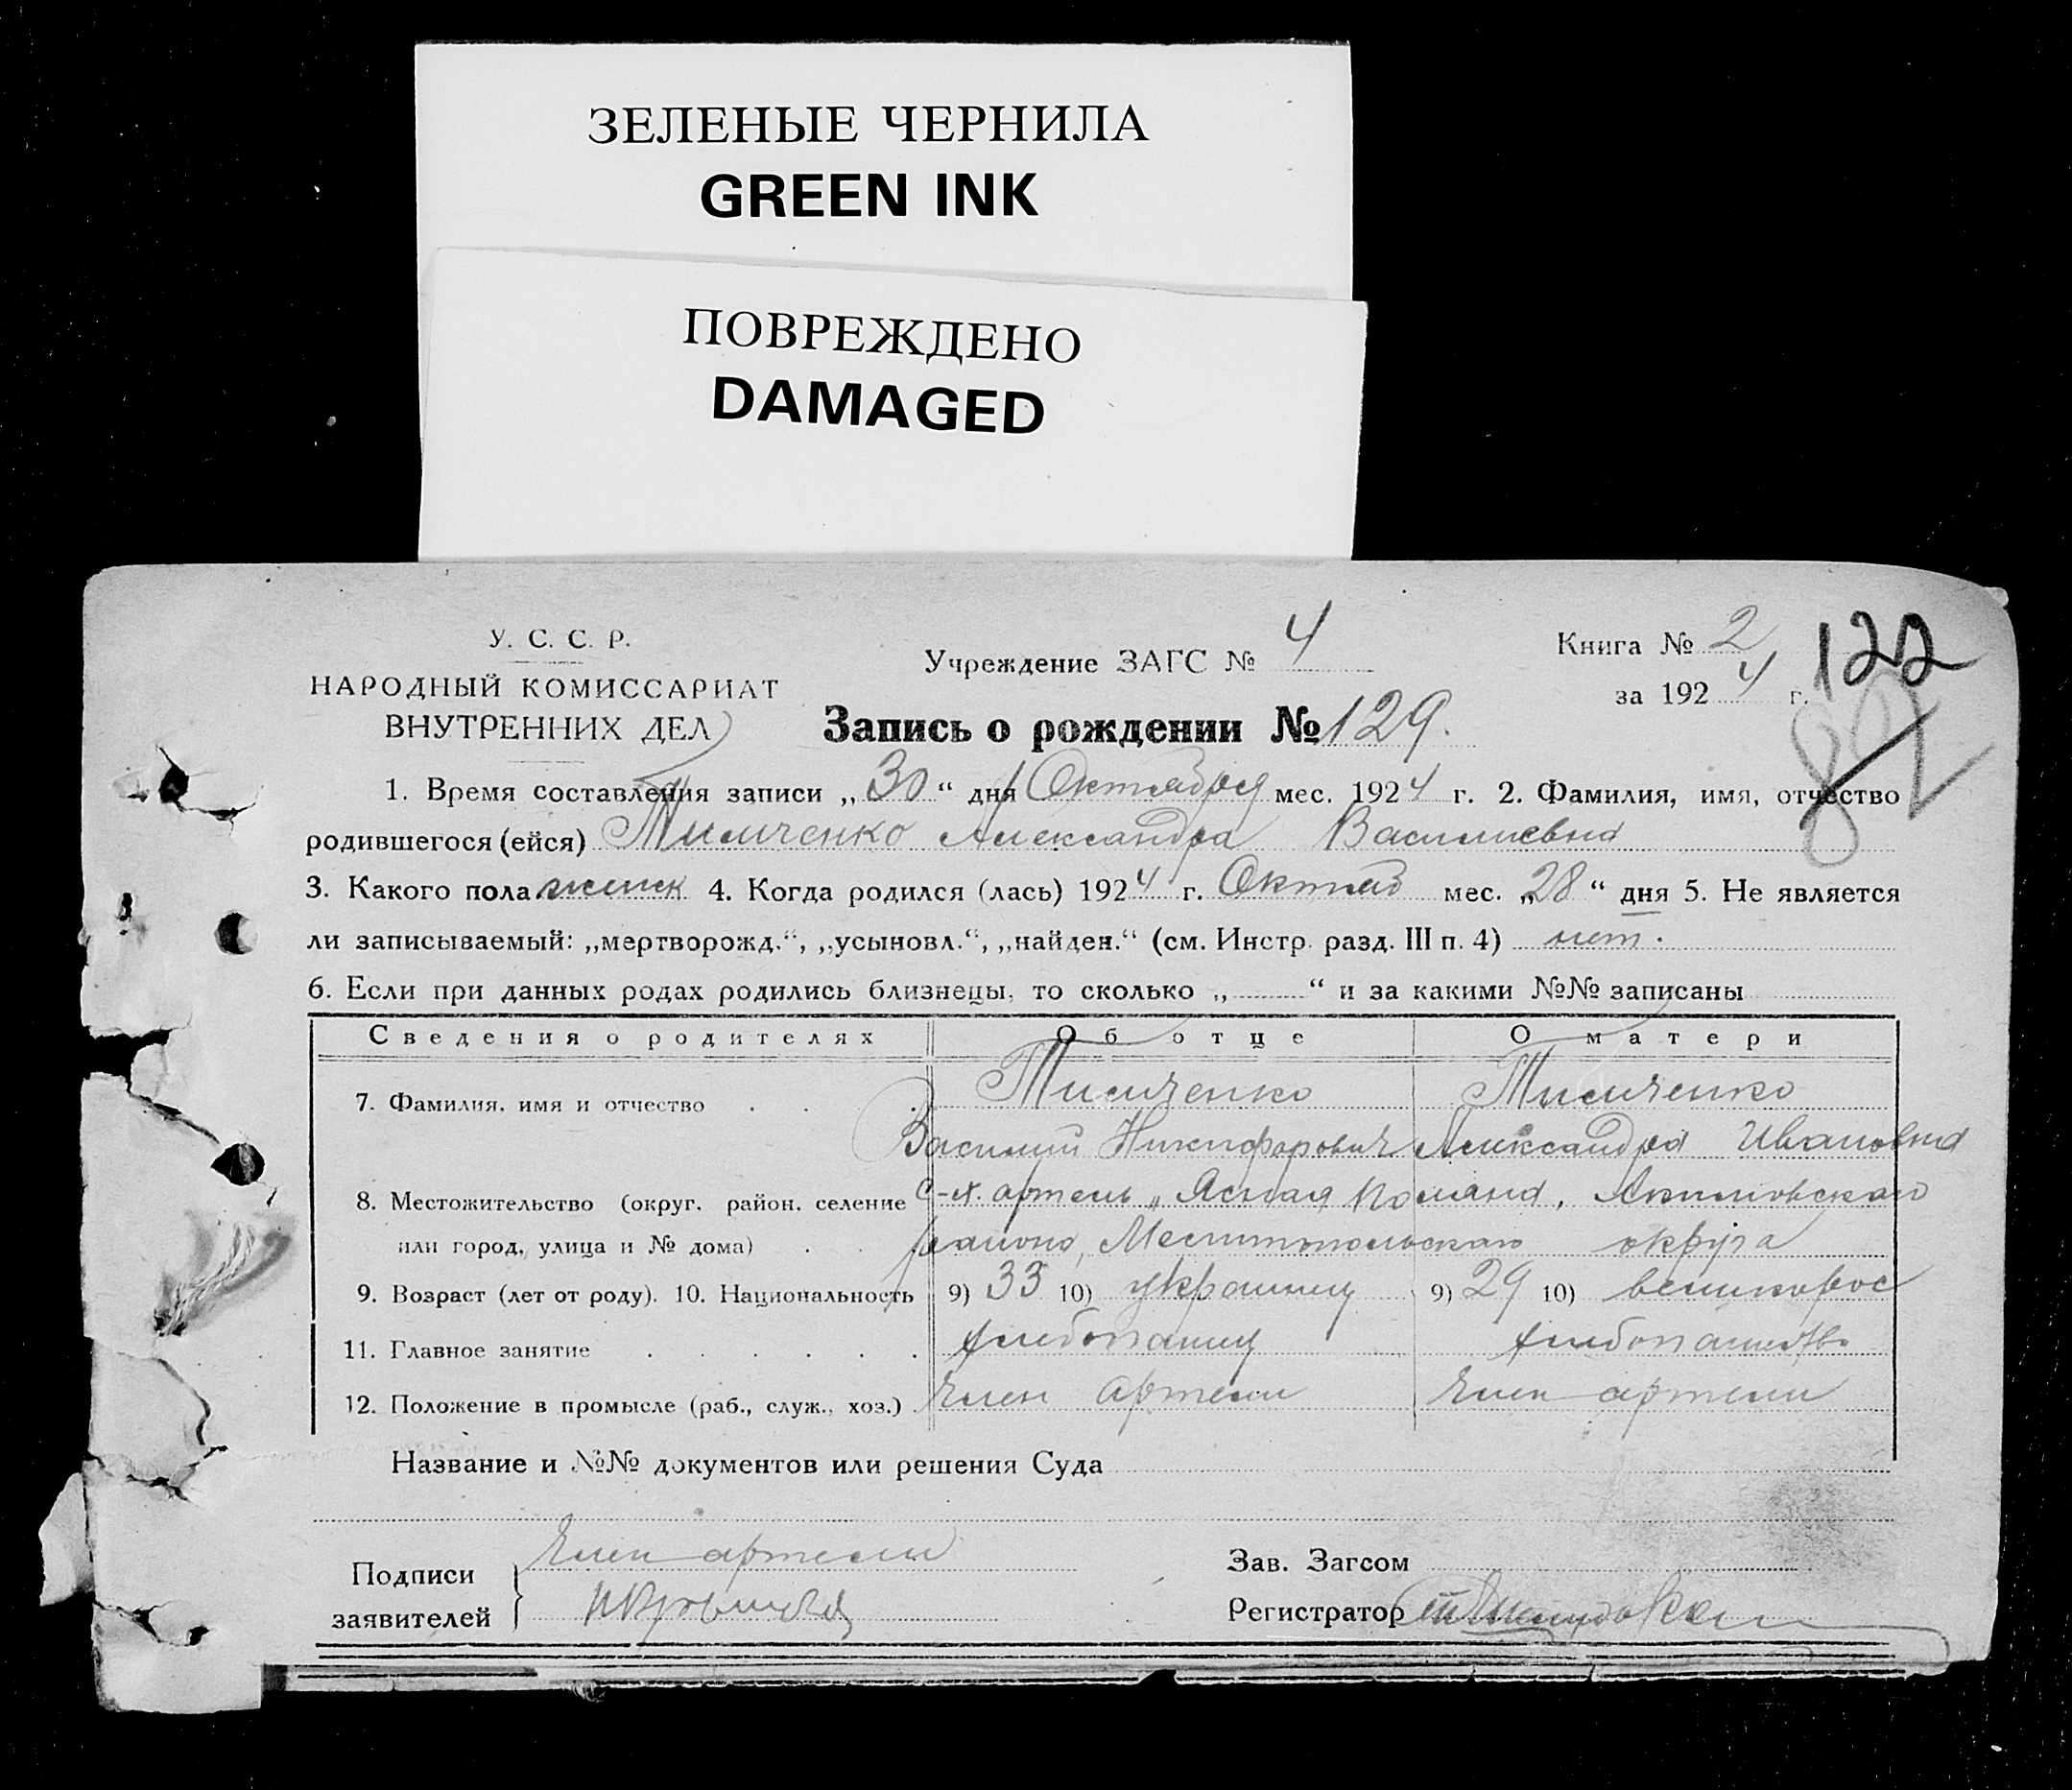 ЗЕЛЕНЫЕ ЧЕРНИЛА
GREEN INK
ПОВРЕЖДЕНО
DAMAGED
У. С. С. Р.
НАРОДНЫЙ КОМИССАРИАТ
ВНУТРЕННИХ ДЕЛ
Учреждение ЗАГС № 4
Книга № 2
за 1924 г.
122
Запись о рождении № 129.
1. Время составления записи „30“ дня Октября мес. 1924 г. 2. Фамилия, имя, отчество
родившегося (ейся) Тимченко Александра Васильевна
3. Какого пола женск 4. Когда родился (лась) 1924 г. Октяб мес. „28“ дня 5. Не является
ли записываемый: „мертворожд.“, „усыновл.“, „найден.“ (см. Инстр. разд. III п. 4) нет.
6. Если при данных родах родились близнецы, то сколько „ “ и за какими №№ записаны
Сведения о родителях Об отце О матери
7. Фамилия, имя и отчество Тимченко Тимченко
Василий Никифорович Александра Ивановна
8. Местожительство (округ, район, селение С-х. артель „Ясная Поляна, Акимовского
или город, улица и № дома) района, Мелитопольского округа
9. Возраст (лет от роду). 10. Национальность 9) 33 10) украинец 9) 29 10) великорос
11. Главное занятие хлебопашец хлебопашество
12. Положение в промысле (раб., служ., хоз.) Член артели Член артели
Название и №№ документов или решения Суда
Подписи заявителей
Член артели
Зав. Загсом
Регистратор